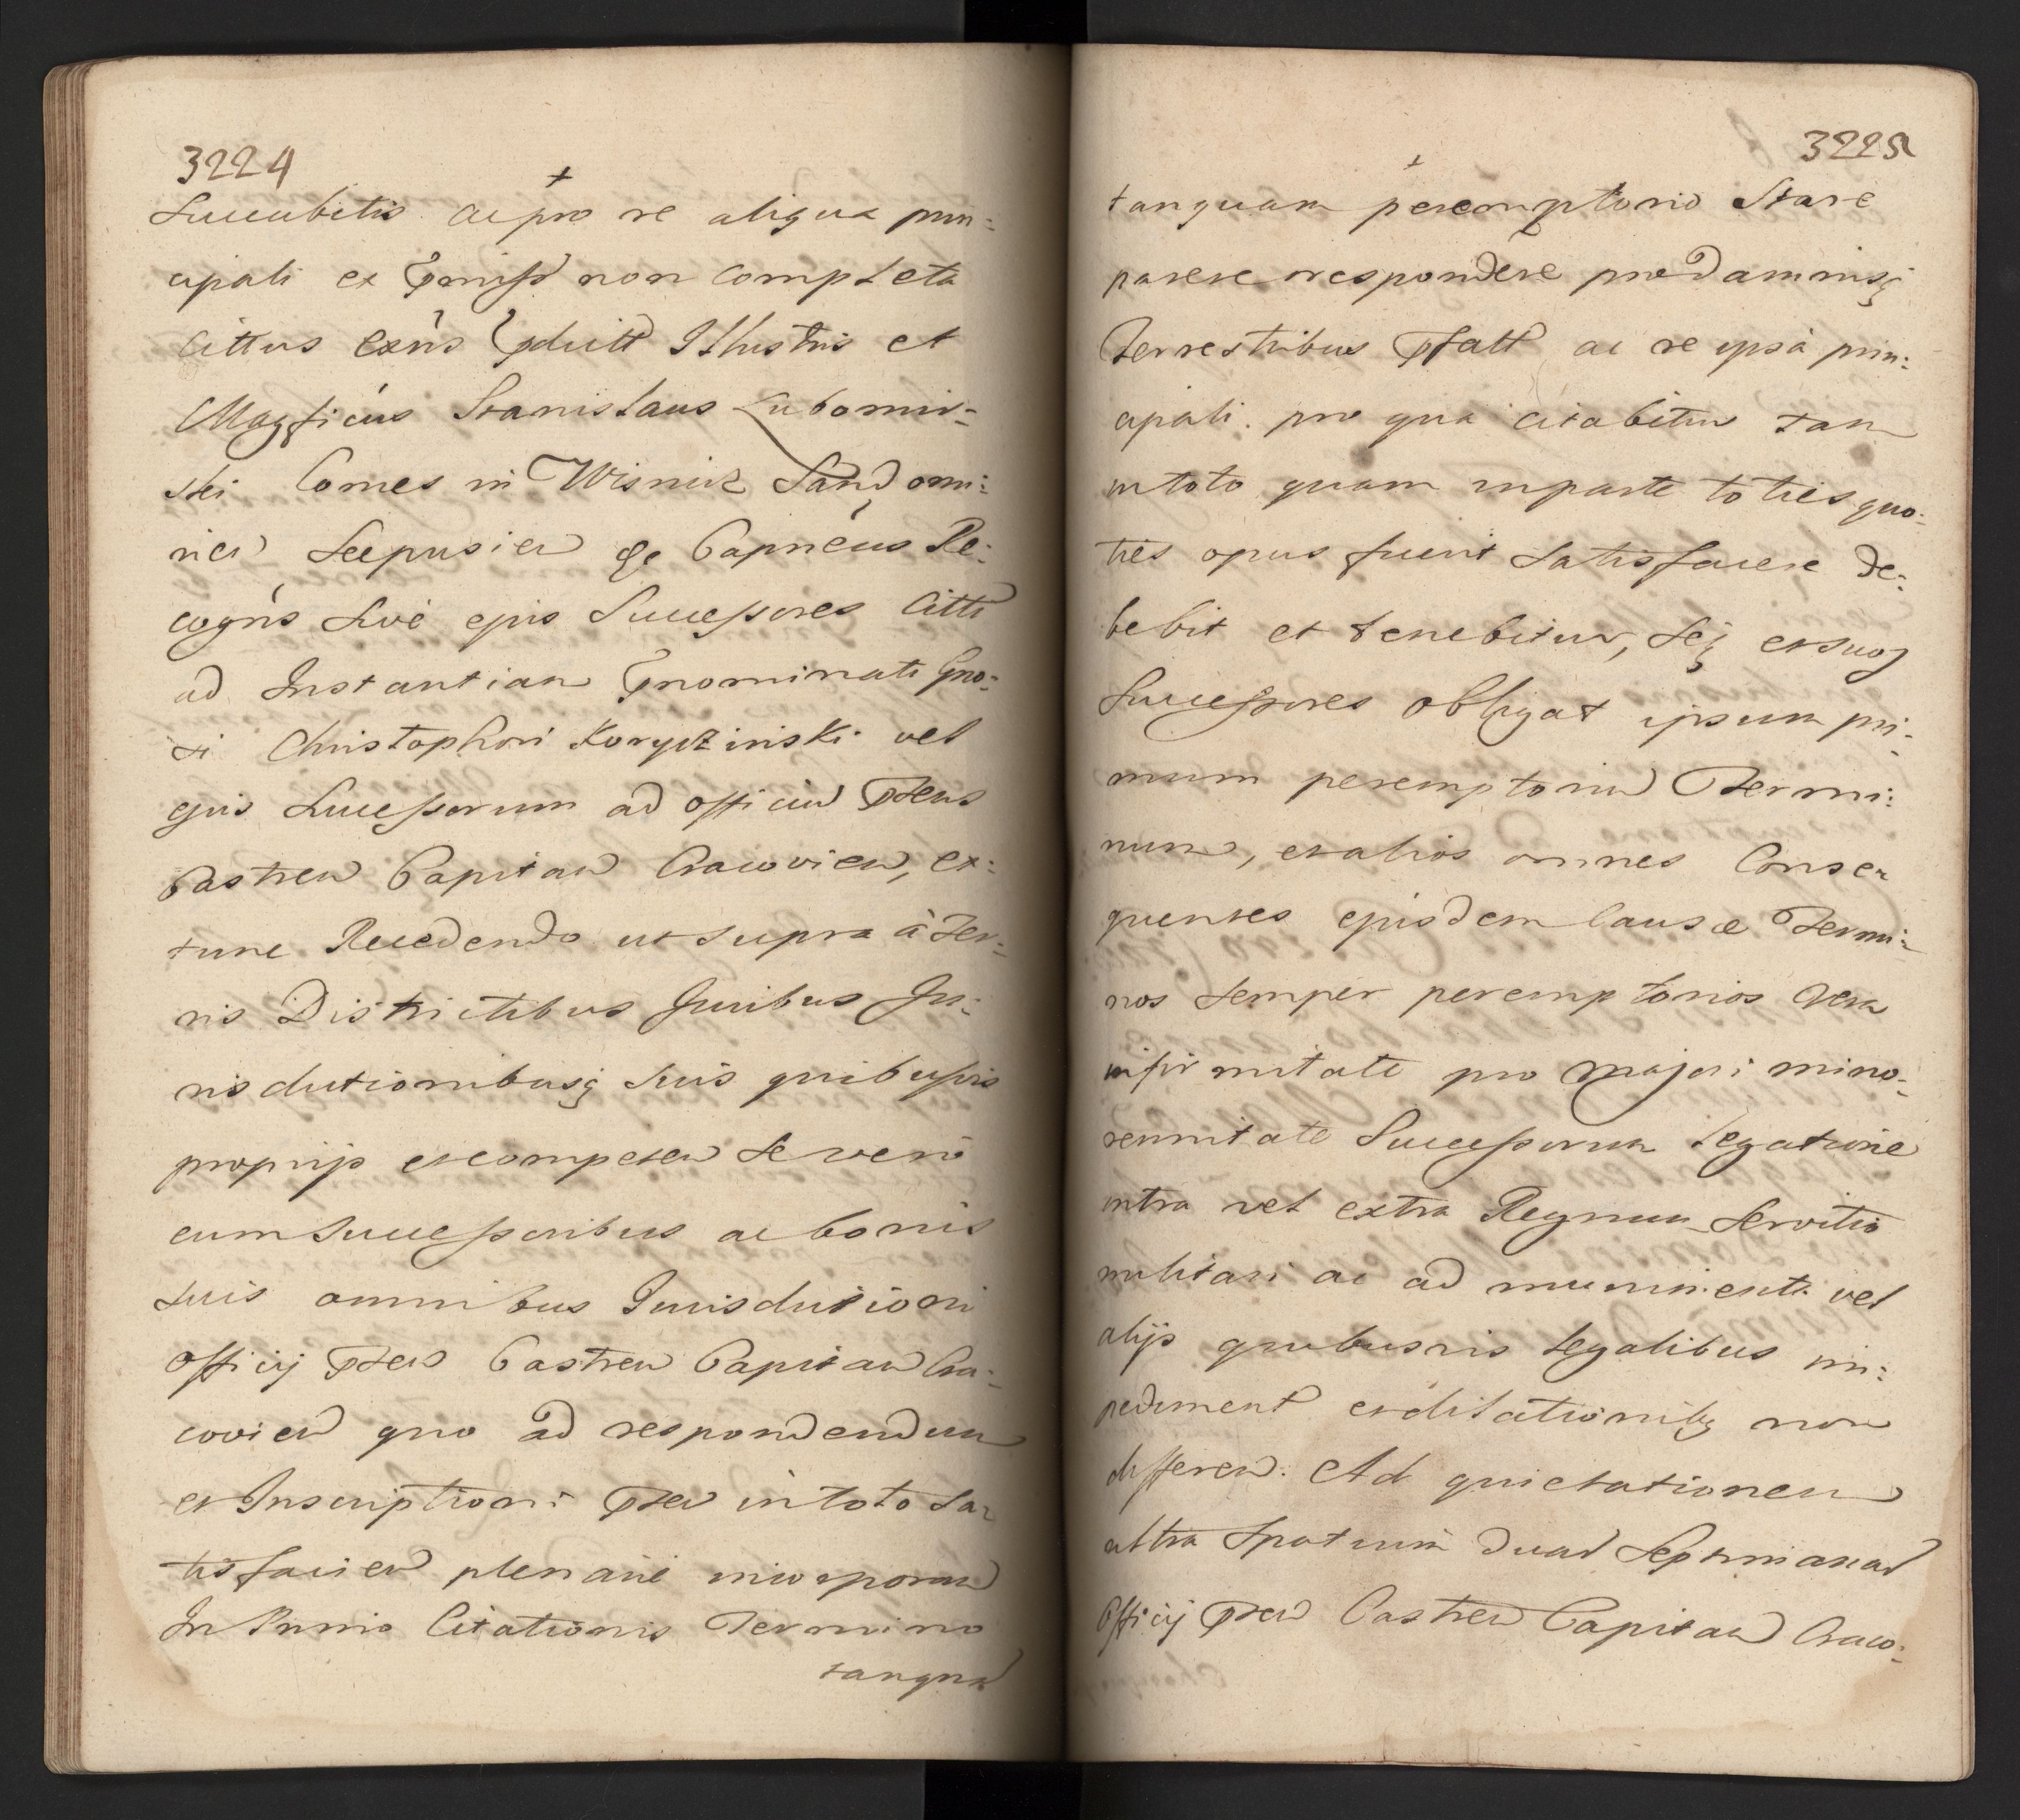 3224
+
Succubitis ac pro re aliqua prin:
cipali ex pmiss non completa
Cittus exñs pduitt Illustris et
Magficus Stanislaus Lubomir-
ski Comes in Wisnicz Sandomi:
rien Scepusien &c Capneus Re:
cogñs Sive ejus Successores Citti
ad Instantiam pnominati Gno:
si Christophori Koryczinski vel
ejus Successorum ad officiu pñens
Castren Capitan Cracovien, ex:
tunc Recedendo ut supra à Ter:
ris Districtibus Juribus Ju:
risdictionibusq suis quibusvis
proprijs et competen se vero
cum Successoribus ac bonis
suis omnibus Jurisdictioni
officij pñens Castren Capitan Cra:
covien quo ad respondendum
et Inscriptioni pñen in toto Sa:
tisfacien plenarie incorporan
In Primo Citationis Termino
tanqua
3225
+
tanquam peremptorio Stare
parere respondere pro Damnisq
Terrestribus pfatt ac re ipsa prin:
cipali pro qua citabitur tam
in toto quam in parte toties quo:
ties opus fuerit Satisfacere de:
bebit et tenebitur, Seq et suos
Successores obligat ipsum pri:
mum peremptoriu Termi:
num, et alios omnes Conse:
quentes ejusdem Causæ Termi:
nos semper peremptorios vera
infirmitate pro majori mino:
rennitate Successorum legatione
intra vel extra Regnum Servitio
militari ac ad munimenta vel
alijs quibusvis legalibus im:
pediment et dilationibq non
differen. Ad quietationem
ultra Spatium duar Septimanar
Officij pñen Castren Capitan Craco: